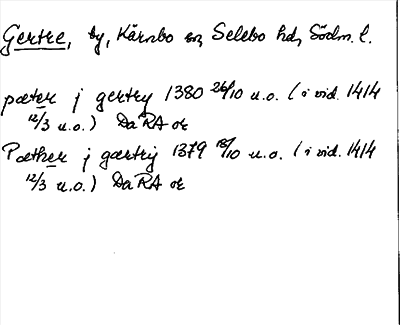 Gertre, by, Kärnbo sn, Selebo hd, Södm. l.
pæter j gertry 1380 26/10 u.o. (i vid. 1414
12/3 u.o.) DaRA or
Pæther j gærtrij 1379 18/10 u.o. (i vid. 1414
12/3 u.o.) DaRA or